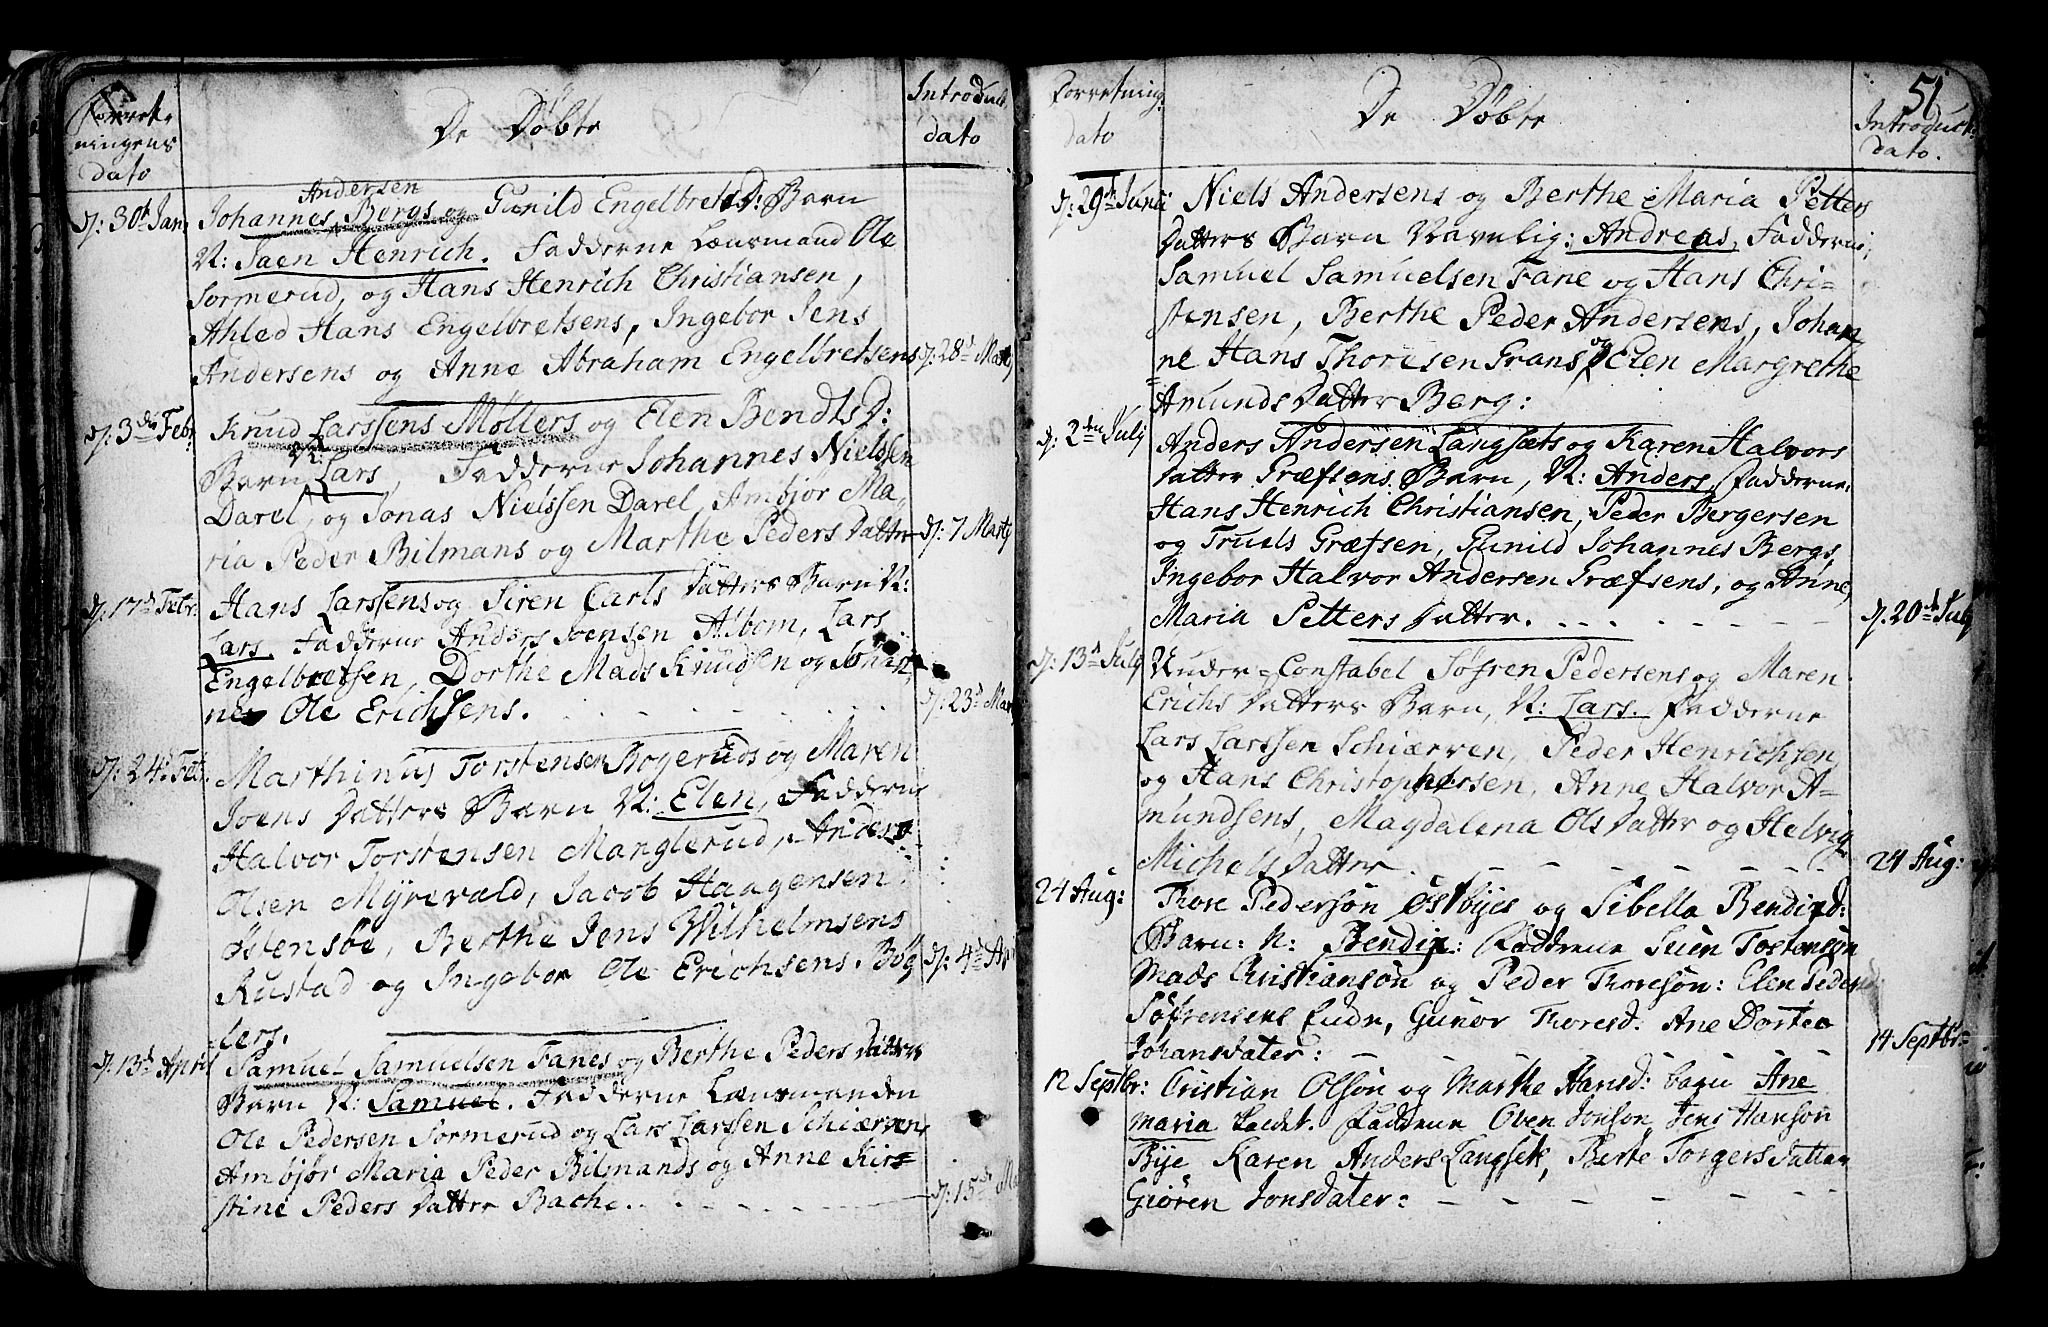 Forret-
ningens
dato
De Döbte
Introduct
dato
d: 30t Jan,
Andersen
Johannes Bergs og Gunild Engelbrets D: Barn
N: Joen Henrich. Fadderne Lænsmand Ole
Sormerud, og Hans Henrich Christiansen,
Ahled Hans Engelbretsens, Ingebor Jens
Andersens og Anne Abraham Engelbretsens
d: 28d Marty
d: 3die Febr.
Knud Larssens Møllers og Elen Bendts D:
Barn N: Lars, Fadderne Johannes Nielssen
Darel, og Jonas Nielssen Darel, Ambjør Ma-
ria Peder Bilmans og Marthe Peders Datter
d: 7 Marty
d: 17d Febr.
Hans Larssens og Siren Carls Datters Barn N:
Lars. Fadderne Anders Joensen Abbom, Lars
Engelbretsen, Dorthe Mads Knudsen og Johan-
ne Ole Erichsens.
d: 23d Mar
d: 24d Febr.
Marthinus Torstensen Bogeruds og Maren
Joens Datters Barn N: Elen, Fadderne
Halvor Torstensen Manglerud, Anders
Olsen Myrevald, Jacob Haagensen
Østensbe, Berthe Jens Wilhelmsens
Rustad og Ingebor Ole Erichsens Bøg
lers.
d: 4d Ap
d: 13d April
Samuel Samuelsen Fanes og Berthe Peders Datters
Barn N: Samuel. Fadderne Lænsmanden
Ole Pedersen Sormerud og Lars Larssen Schiærven,
Ambjør Maria Peder Bilmands og Anne Kir-
stine Peders Datter Bache.
d: 15d Ma
51
Forretning:
dato
De Döbte
Introduct:
dato.
d: 29d Junii
Niels Andersens og Berthe Maria Petters
Datters Barn Navnlig: Andreas, Fadderne,
Samuel Samuelsen Fane og Hans Chri-
stensen, Berthe Peder Andersens, Johan-
ne Hans Thoresen Grans, og Elen Margrethe
Amunds Datter Berg:
d: 2den July
Anders Andersen Langsæts og Karen Halvors
Datter Græfsens Barn, N: Anders, Fadderne:
Hans Henrich Christiansen, Peder Bergersen
og Truels Græfsen, Gunild Johannes Bergs
Ingebor Halvor Andersen Græfsens, og Anne,
Maria Petters Datter.
d: 20de July
d: 13d July
Under-Constabel Söfren Pedersens og Maren
Erichs Datters Barn, N: Lars. Fadderne
Lars Larssen Schiærven, Peder Henrichsen,
og Hans Christophersen, Anne Halvor A-
mundsens, Magdalena Ols Datter og Helvig
Michels Datter.
24 Aug:
24 Aug:
Thore Pedersøn Østbyes og Sibella Bendixd:
Barn: N: Bendix: Faddrene Siver Tostensøn
Mads Christiansøn og Peder Thoresøn: Elen Peder
Söfrensens Enke, Gunor Thoresd. Ane Dortea
Johansdater:
14 Septbr
12 Septbr:
Cristian Olsøn og Marthe Hansd: barn Ane
maria kaldet. Faddrene Oven Jonsøn, Jens Hansøn
Bye Karen Anders Langset, Berte Torgers datter
Giøren Jonsdater: